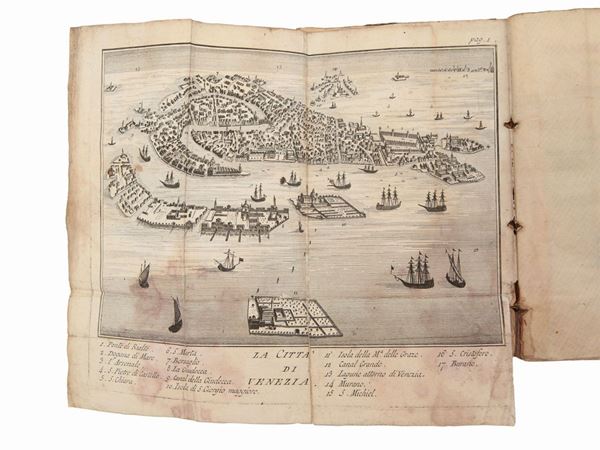 pag. 1.
1. Ponte di Rialto.
2. Dogana di Mare.
3. l'Arsenale.
4. S. Pietro di Castello.
5. S. Chiara.
6. S. Marta.
7. Bersaglio.
8. La Giudecca.
9. Canal della Giudecca.
10. Isola di S. Giorgio maggiore.
LA CITTÀ
DI
VENEZIA
11 Isola della M.ª delle Graze.
12 Canal Grande.
13 Lagune attorno di Venezia.
14 Murano.
15 S. Michiel.
16 S. Cristoforo.
17 Burano.